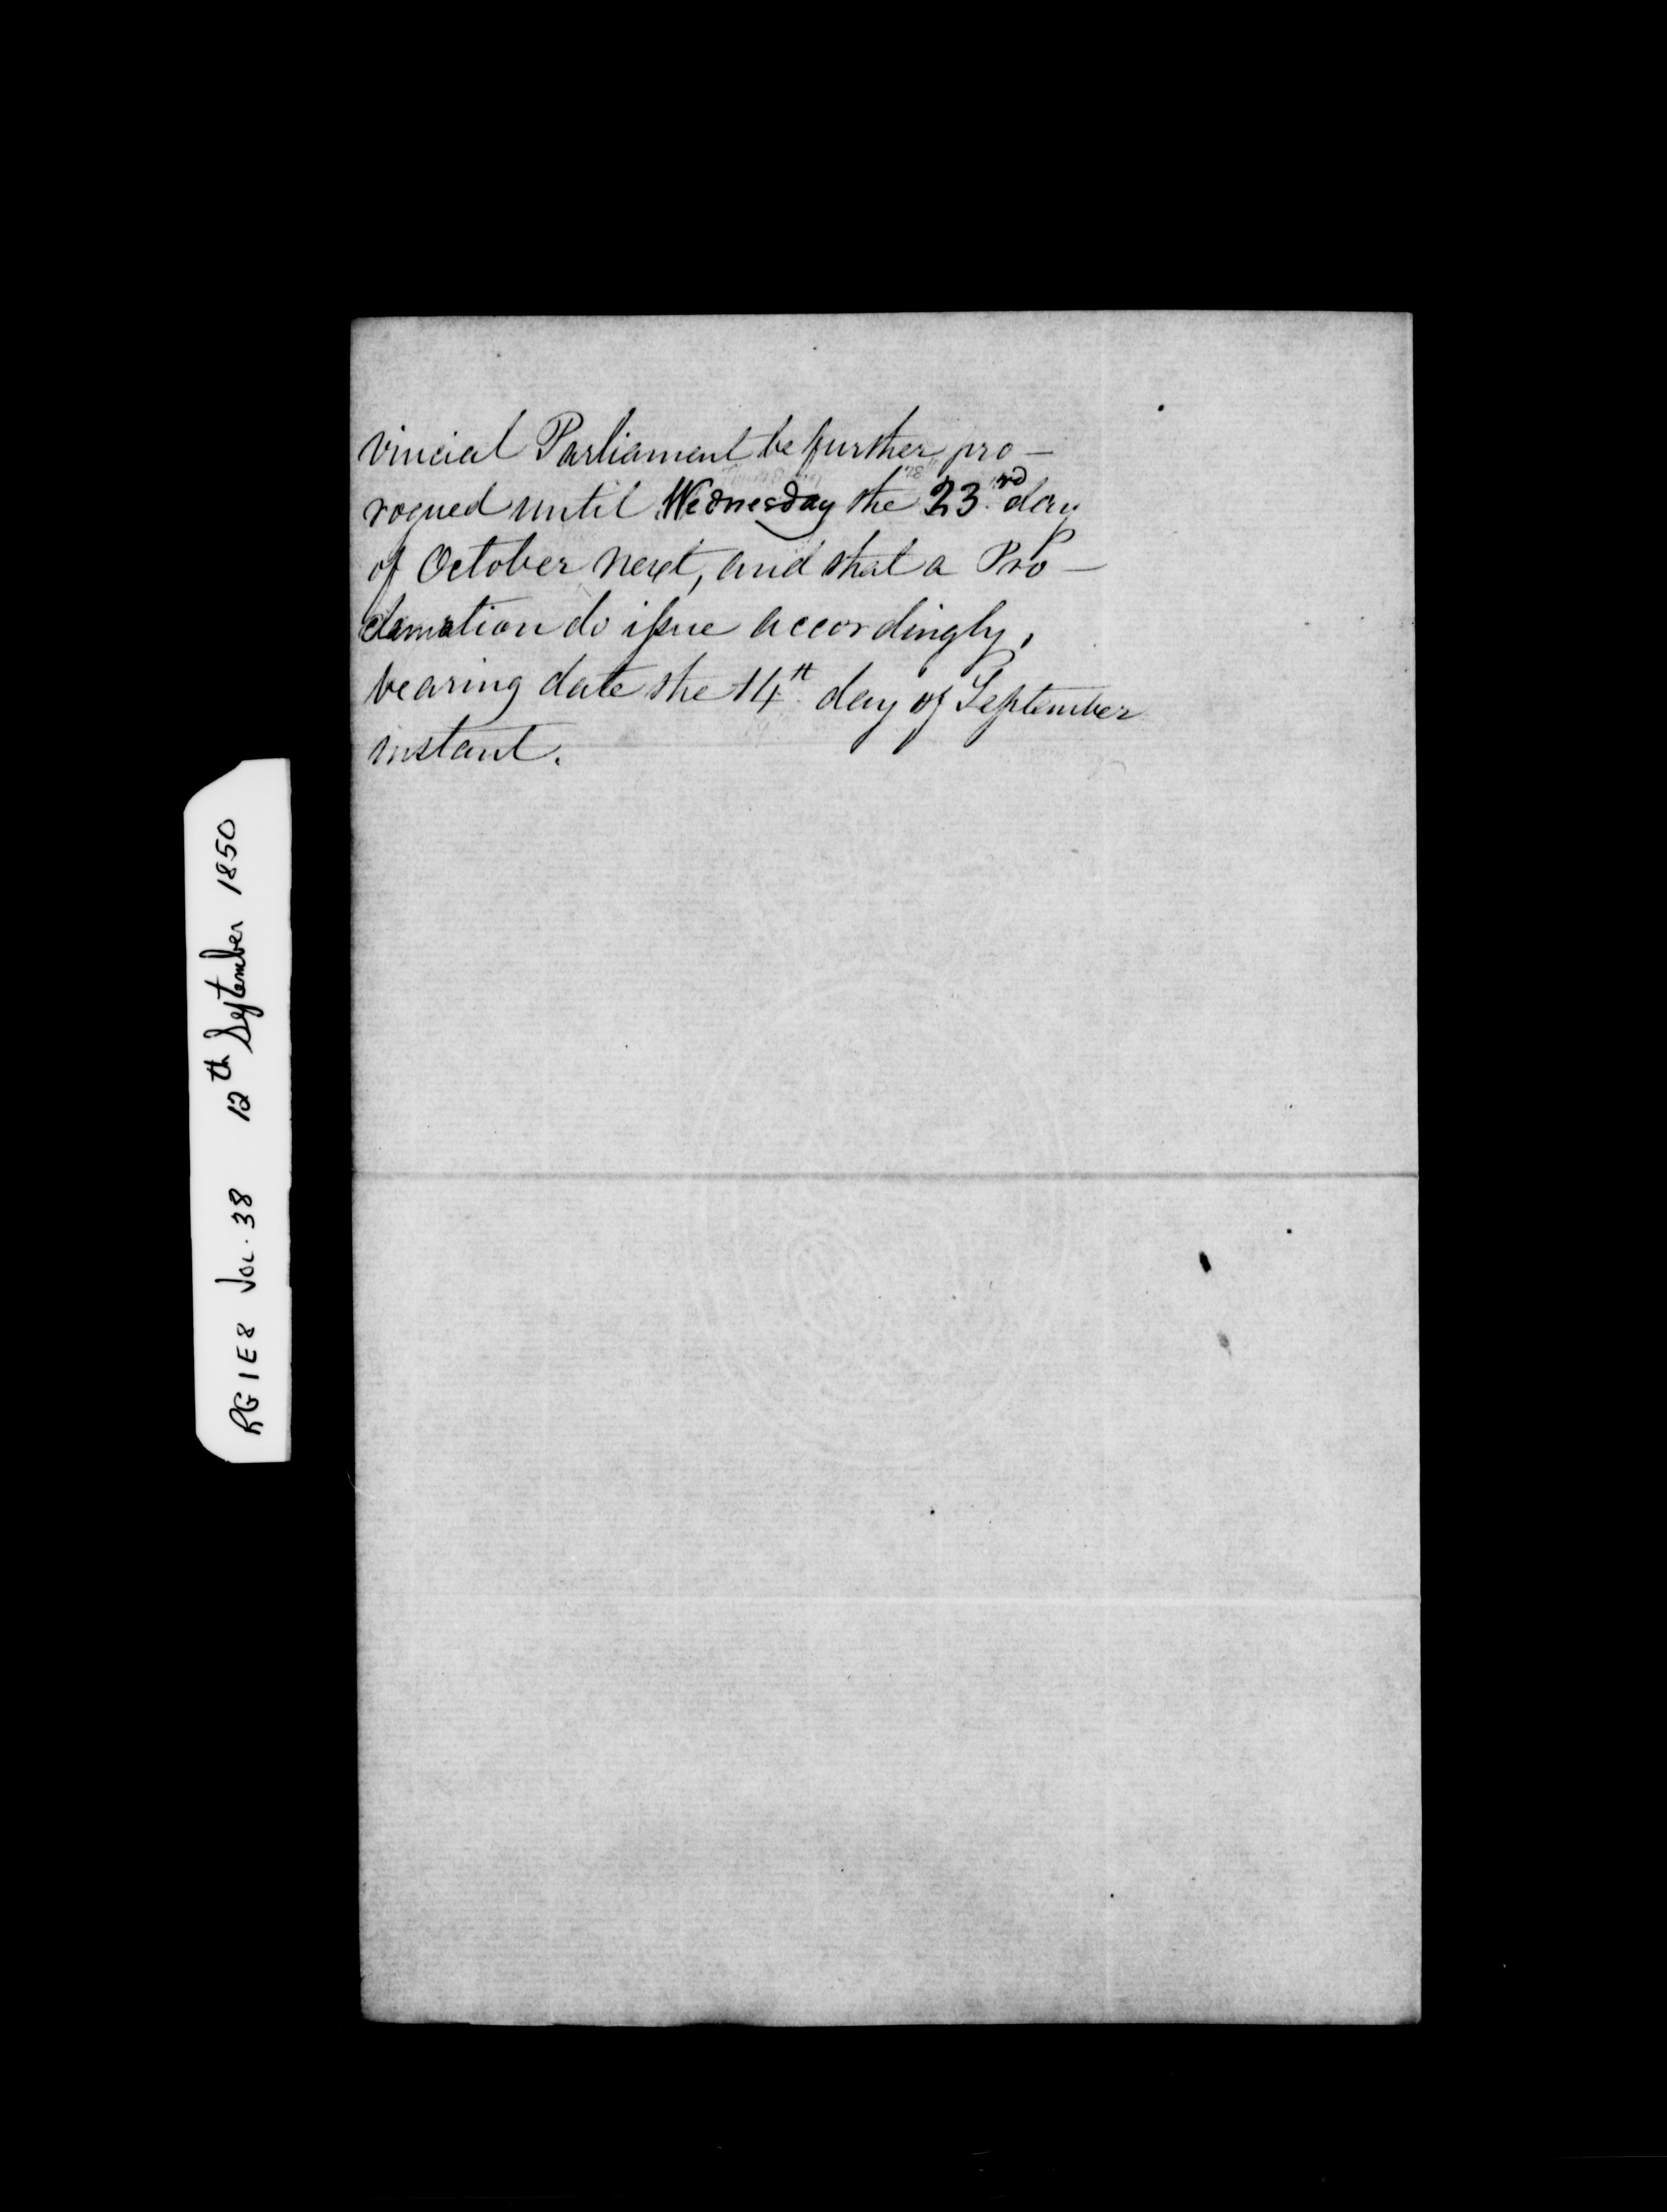 vincial Parliament be further pro-
rogued until Wednesday the 23.rd day
of October next, and that a Pro-
clamation do issue accordingly,
bearing date the 14th day of September
instant.
RG 1 E8 Vol. 38 12th September 1850